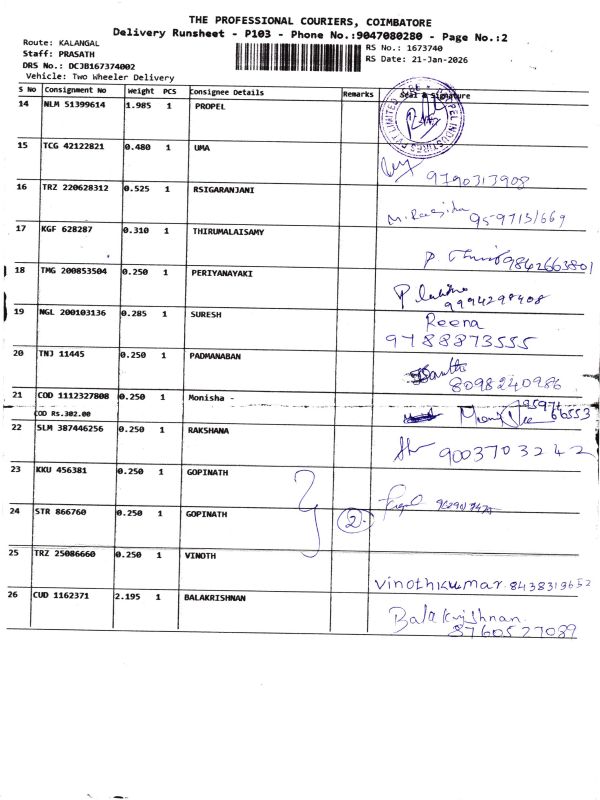 THE PROFESSIONAL COURIERS, COIMBATORE
Delivery Runsheet - P103 - Phone No.:9047080280 - Page No.:2
Route: KALANGAL
Staff: PRASATH
DRS No.: DCJB167374002
Vehicle: Two Wheeler Delivery
RS No.: 1673740
RS Date: 21-Jan-2026
S No Consignment No Weight PCS Consignee Details Remarks Seal & Signature
14 NLM 51399614 1.985 1 PROPEL
15 TCG 42122821 0.480 1 UMA
9790313908
16 TRZ 220628312 0.525 1 RSIGARANJANI
9597151669
17 KGF 628287 0.310 1 THIRUMALAISAMY
9842663801
18 TMG 200853504 0.250 1 PERIYANAYAKI
9994298408
19 NGL 200103136 0.285 1 SURESH
Reena
9788873555
20 TNJ 11445 0.250 1 PADMANABAN
8098240986
21 COD 1112327808 0.250 1 Monisha -
COD Rs.302.00
22 SLM 387446256 0.250 1 RAKSHANA
9003703242
23 KKU 456381 0.250 1 GOPINATH
24 STR 866760 0.250 1 GOPINATH 2
25 TRZ 25086660 0.250 1 VINOTH
Vinothkumar 8438319652
26 CUD 1162371 2.195 1 BALAKRISHNAN
Balakrishnan
8760527089